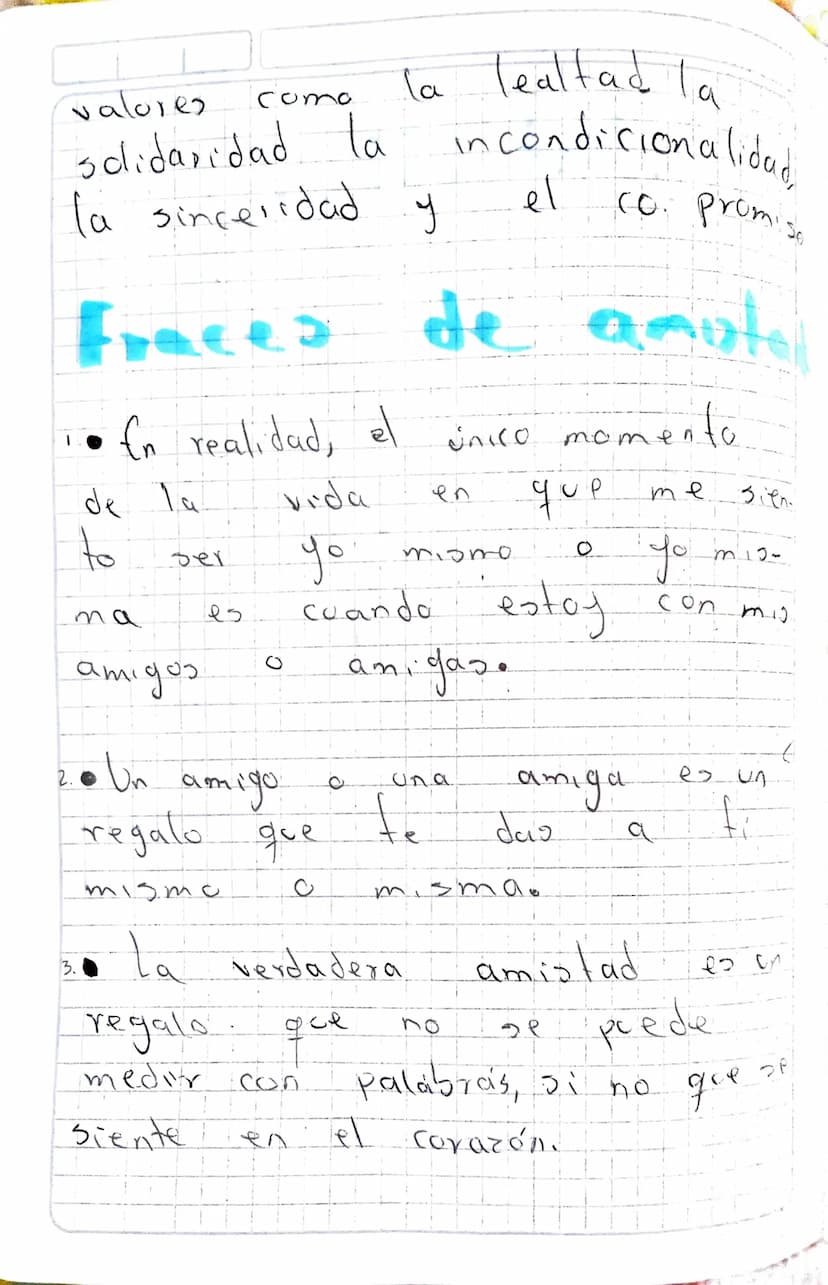 valores como la lealtad la
solidaridad la incondicionalidad,
la sinceridad y el co.promiso
Fraces de amistad
1. • En realidad, el único momento
de la vida en que me sien-
to ser yo mismo o yo mis-
ma es cuando estoy con mis
amigos o amigas.
2. • Un amigo o una amiga es un
regalo que te das a ti
mismo o misma.
3. • La verdadera amistad es un
regalo. que no se puede
medir con palabras, si no que se
siente en el corazón.